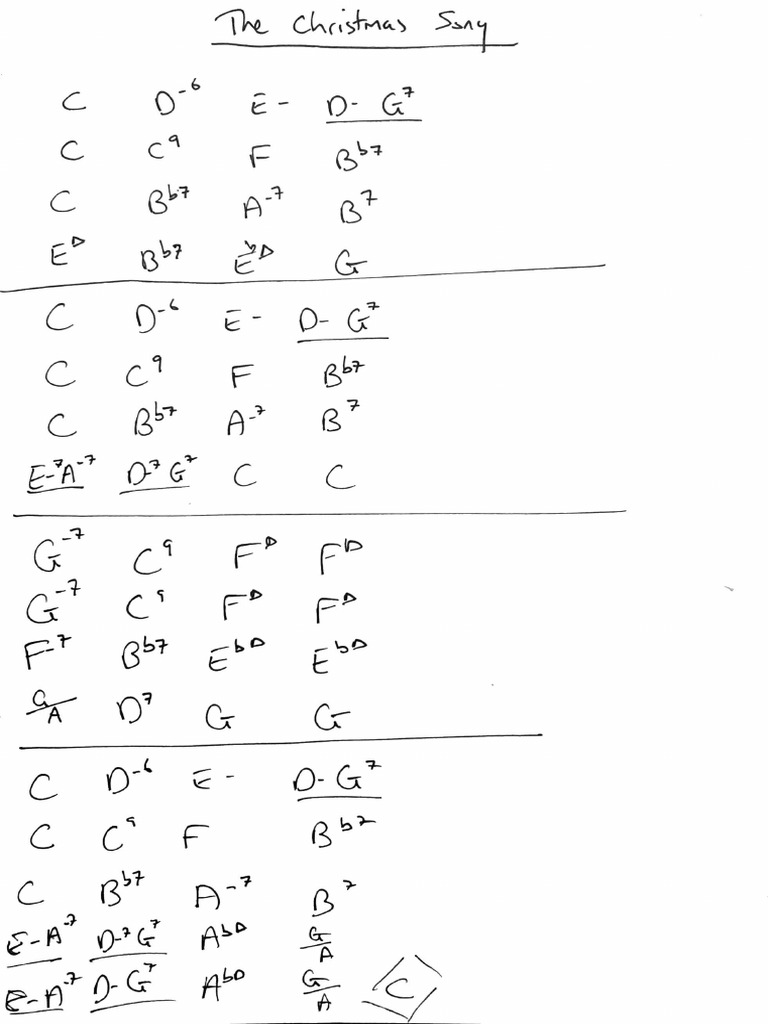 The Christmas Song
C D-6 E- D- G7
C C9 F Bb7
C Bb7 A-7 B7
EΔ Bb7 EbΔ G
C D-6 E- D- G7
C C9 F Bb7
C Bb7 A-7 B7
E-7 A-7 D-7 G7 C C
G-7 C9 FΔ FΔ
G-7 C9 FΔ FΔ
F-7 Bb7 EbΔ EbΔ
G/A D7 G G
C D-6 E- D- G7
C C9 F Bb7
C Bb7 A-7 B7
E- A-7 D-7 G7 AbΔ G/A
E- A-7 D- G7 AbΔ G/A C